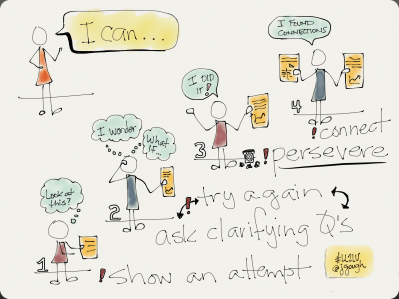 I can...
I FOUND
CONNECTIONS
I DID
IT!
4
!connect
3
!persevere
I wonder
What
if
2
!try again
ask clarifying Q's
Look at
this?
1
!show an attempt
@jgough